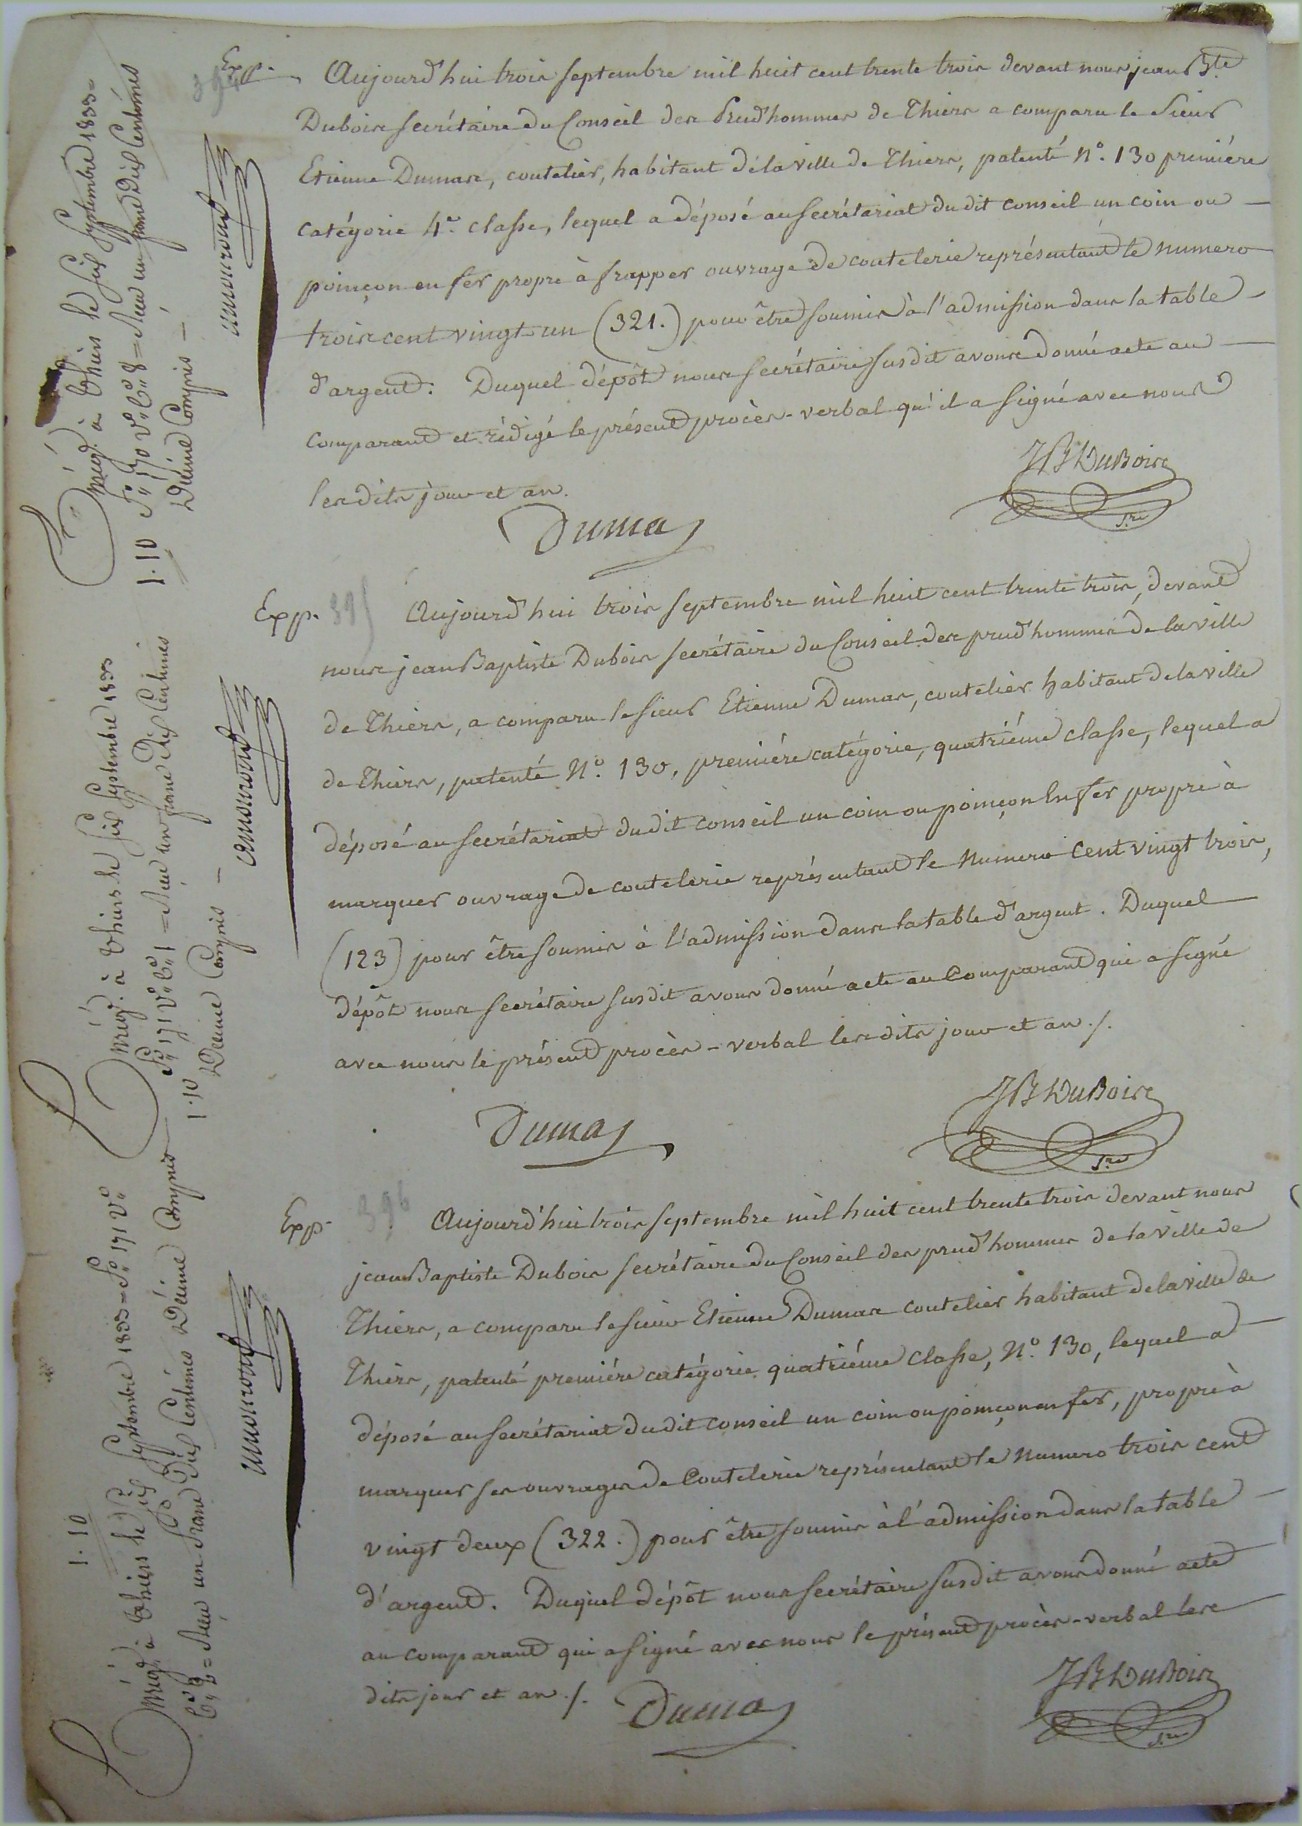 Exp. 394
Aujourd'hui trois septembre mil huit cent trente trois devant nous jean Bte
Dubois secrétaire du Conseil des Prud'hommes de Thiers a comparu le Sieur
Etienne Dumas, coutelier, habitant de la ville de Thiers, patenté N°. 130 première
catégorie 4e. classe, lequel a déposé au secrétariat du dit conseil un coin ou
poinçon en fer propre à frapper ouvrage de coutelerie représentant le numero
trois cent vingt un (321.) pour être soumis à l'admission dans la table
d'argent. Duquel dépôt nous secrétaire susdit avons donné acte au
comparant et rédigé le présent procès-verbal qu'il a signé avec nous
les dits jour et an.
JB DuBois
Sre
Dumas
Enregt. à Thiers le six Septembre 1833=
1.10 f° 170 v° C° 8 = Reçu un franc Dix Centimes
Décime Compris —
Exp. 395
Aujourd'hui trois septembre mil huit cent trente trois, devant
nous jean Baptiste Dubois secrétaire du Conseil des prud'hommes de la ville
de Thiers, a comparu le sieur Etienne Dumas, coutelier habitant de la ville
de Thiers, patenté N°. 130, première catégorie, quatriéme classe, lequel a
déposé au secrétariat du dit conseil un coin ou poinçon en fer propre à
marquer ouvrage de coutelerie représentant le Numero cent vingt trois,
(123) pour être soumis à l'admission dans la table d'argent. Duquel
dépôt nous secrétaire susdit avons donné acte au Comparant qui a signé
avec nous le présent procès-verbal les dits jour et an ./.
JB DuBois
Sre
Dumas
Enregt. à Thiers le six Septembre 1833
f° 171 v° C° 1 = Reçu un franc dix Centimes
1.10 Décime Compris —
Exp. 396
Aujourd'hui trois septembre mil huit cent trente trois devant nous
jean Baptiste Dubois secrétaire du Conseil des prud'hommes de la ville de
Thiers, a comparu le sieur Etienne Dumas coutelier habitant de la ville de
Thiers, patenté première catégorie quatriéme classe, N°. 130, lequel a
déposé au secrétariat du dit conseil un coin ou poinçon en fer, propre à
marquer ses ouvrages de Coutelerie représentant le Numero trois cent
vingt deux (322.) pour être soumis à l'admission dans la table
d'argent. Duquel dépôt nous secrétaire susdit avons donné acte
au comparant qui a signé avec nous le présent procès-verbal les
dits jour et an ./.
Dumas
JB DuBois
Sre
1.10
Enregt. à Thiers le six Septembre 1833 = f° 171 v°
C° 2 = Reçu un franc Dix Centimes Décime Compris